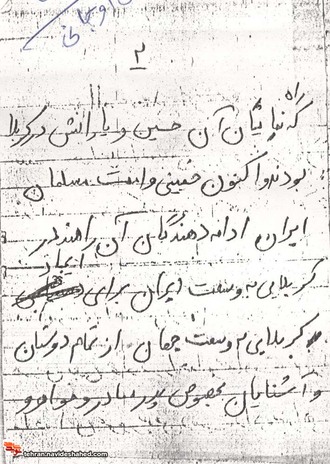 ۲
راه
که نمایان آن حسین و یارانش در کربلا
بودند و اکنون خمینی و امت مسلمان
ایران ادامه دهندگان آن راهند در
کربلایی به وسعت ایران برای
ایجاد
کربلایی به وسعت جهان از تمام دوستان
و آشنایان بخصوص پدر و مادر و خواهر و
tehran.navideshahed.com